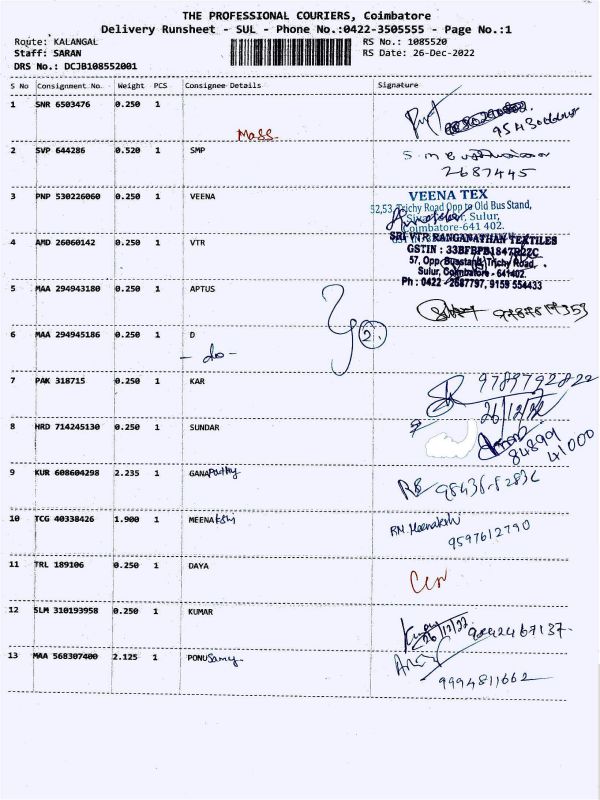 THE PROFESSIONAL COURIERS, Coimbatore
Delivery Runsheet - SUL - Phone No.:0422-3505555 - Page No.:1
Route: KALANGAL RS No.: 1085520
Staff: SARAN RS Date: 26-Dec-2022
DRS No.: DCJB108552001
S No Consignment No. Weight PCS Consignee Details Signature
1 SNR 6503476 0.250 1
Mass
2 SVP 644286 0.520 1 SMP
2687445
3 PNP 530226060 0.250 1 VEENA
VEENA TEX
52,53, Trichy Road Opp to Old Bus Stand,
Sulur,
Coimbatore-641 402.
4 AMD 26060142 0.250 1 VTR
SRI VTR RANGANATHAN TEXTILES
GSTIN :
57, Opp. Busstand, Trichy Road,
Sulur, Coimbatore - 641402.
Ph : 0422 - 2687797, 9159 554433
5 MAA 294943180 0.250 1 APTUS
6 MAA 294945186 0.250 1 D
- do -
2
7 PAK 318715 0.250 1 KAR
9789792822
26/12/22
8 HRD 714245130 0.250 1 SUNDAR
84899
41000
9 KUR 608604298 2.235 1 GANApathy
10 TCG 40338426 1.900 1 MEENAkshi
RM Meenakshi
9597612790
11 TRL 189106 0.250 1 DAYA
12 SLM 310193958 0.250 1 KUMAR
26/12/22 9842467137
13 MAA 568307400 2.125 1 PONUSamy
9994811662